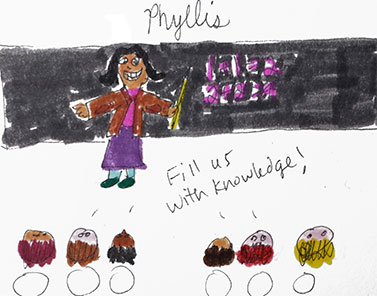 Phyllis
Fill us
with knowledge!